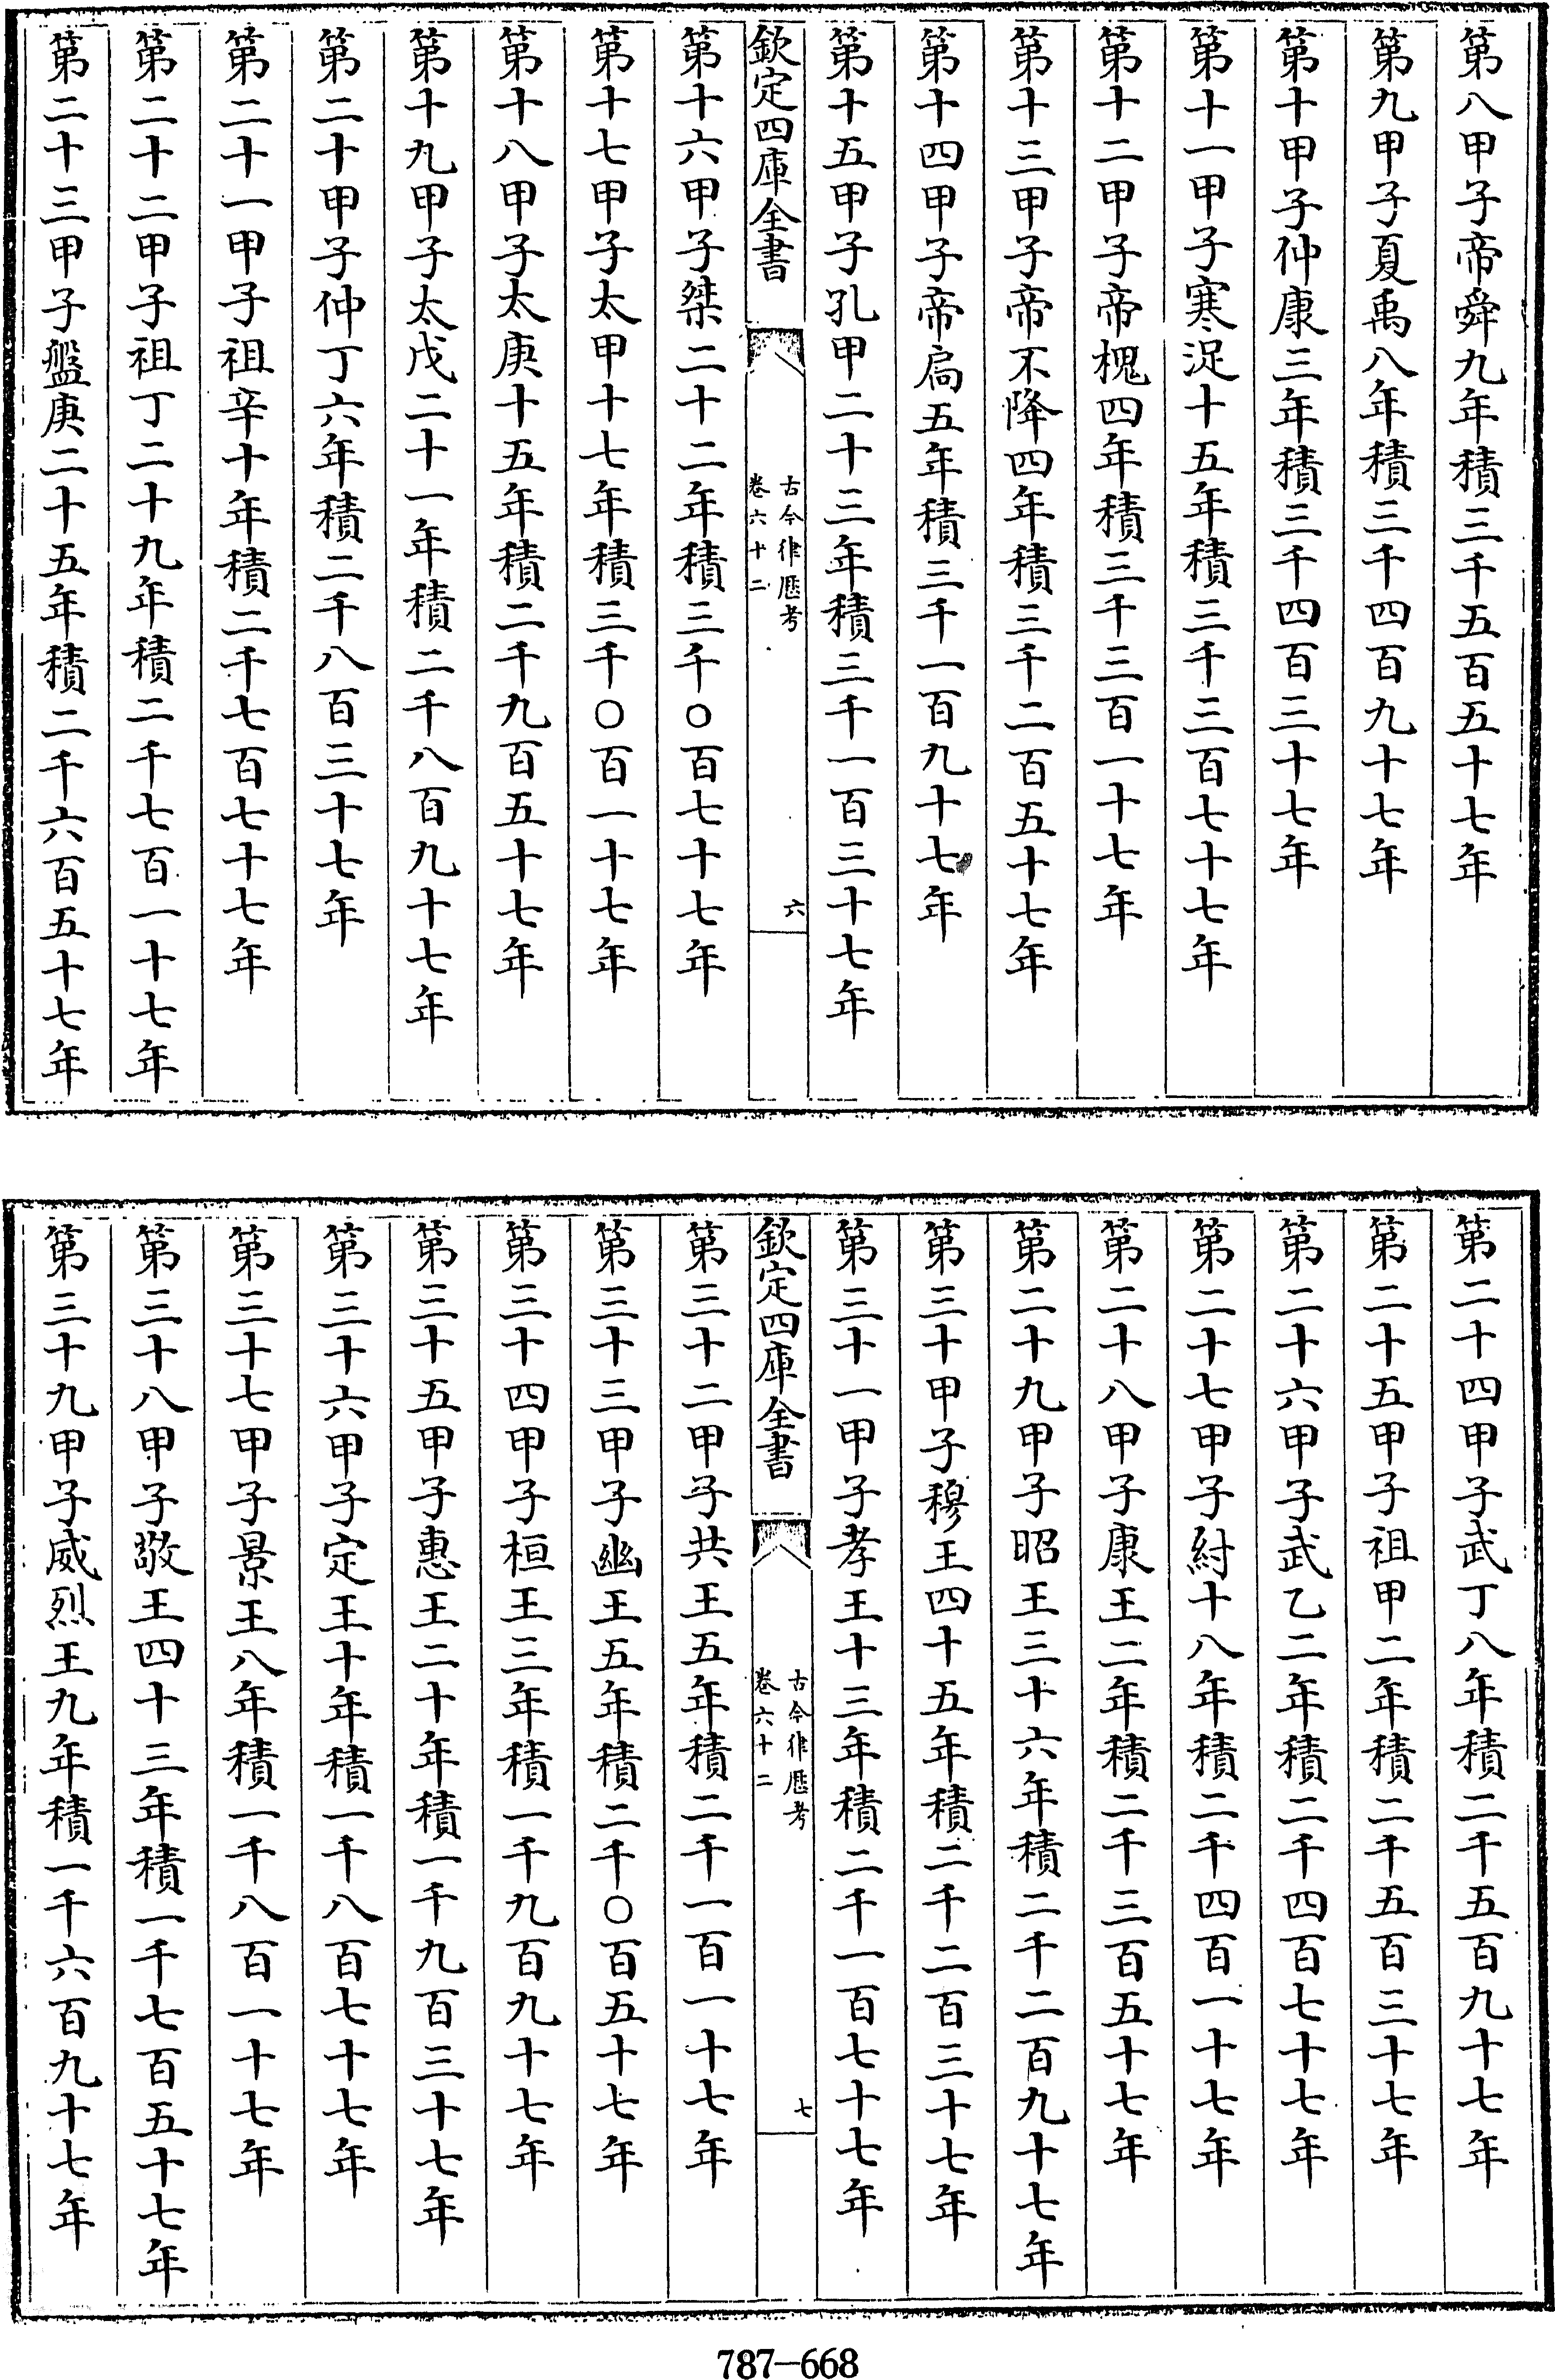 第八甲子帝舜九年積三千五百五十七年
第九甲子夏禹八年積三千四百九十七年
第十甲子仲康三年積三千四百三十七年
第十一甲子寒浞十五年積三千三百七十七年
第十二甲子帝槐四年積三千三百一十七年
第十三甲子帝不降四年積三千二百五十七年
第十四甲子帝扃五年積三千一百九十七年
第十五甲子孔甲二十三年積三千一百三十七年
欽定四庫全書
古今律歷考
卷六十二
六
第十六甲子桀二十二年積三千〇百七十七年
第十七甲子太甲十七年積三千〇百一十七年
第十八甲子太庚十五年積二千九百五十七年
第十九甲子太戊二十一年積二千八百九十七年
第二十甲子仲丁六年積二千八百三十七年
第二十一甲子祖辛十年積二千七百七十七年
第二十二甲子祖丁二十九年積二千七百一十七年
第二十三甲子盤庚二十五年積二千六百五十七年
第二十四甲子武丁八年積二千五百九十七年
第二十五甲子祖甲二年積二千五百三十七年
第二十六甲子武乙二年積二千四百七十七年
第二十七甲子紂十八年積二千四百一十七年
第二十八甲子康王二年積二千三百五十七年
第二十九甲子昭王三十六年積二千二百九十七年
第三十甲子穆王四十五年積二千二百三十七年
第三十一甲子孝王十三年積二千一百七十七年
欽定四庫全書
古今律歷考
卷六十二
七
第三十二甲子共王五年積二千一百一十七年
第三十三甲子幽王五年積二千〇百五十七年
第三十四甲子桓王三年積一千九百九十七年
第三十五甲子惠王二十年積一千九百三十七年
第三十六甲子定王十年積一千八百七十七年
第三十七甲子景王八年積一千八百一十七年
第三十八甲子敬王四十三年積一千七百五十七年
第三十九甲子威烈王九年積一千六百九十七年
787-668